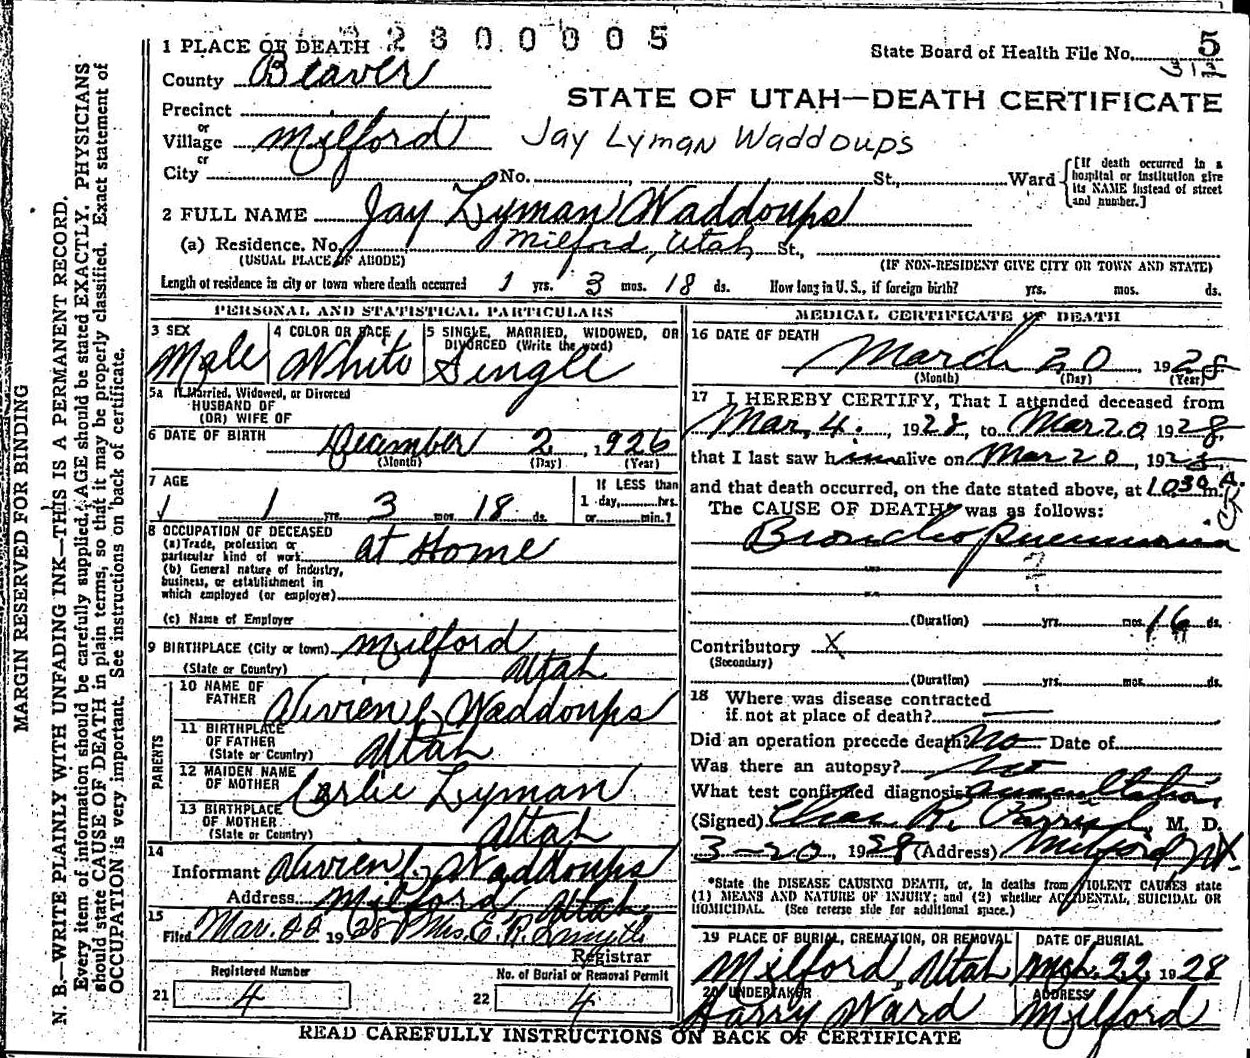 2800005
1 PLACE OF DEATH
State Board of Health File No. 5
312
County Beaver
STATE OF UTAH—DEATH CERTIFICATE
Precinct
or
Village Milford
Jay Lyman Waddoups
or
City No. , St., Ward
[If death occurred in a hospital or institution give its NAME instead of street and number.]
2 FULL NAME Jay Lyman Waddoups
(a) Residence. No. Milford, Utah St.,
(USUAL PLACE OF ABODE) (IF NON-RESIDENT GIVE CITY OR TOWN AND STATE)
Length of residence in city or town where death occurred 1 yrs. 3 mos. 18 ds. How long in U. S., if foreign birth? yrs. mos. ds.
PERSONAL AND STATISTICAL PARTICULARS
3 SEX
Male
4 COLOR OR RACE
White
5 SINGLE, MARRIED, WIDOWED, OR DIVORCED (Write the word)
Single
5a If Married, Widowed, or Divorced
HUSBAND OF
(OR) WIFE OF
6 DATE OF BIRTH
December 2, 1926
(Month) (Day) (Year)
7 AGE
1 yrs. 3 mos. 18 ds.
If LESS than
1 day, hrs.
or min.?
8 OCCUPATION OF DECEASED
(a) Trade, profession or
particular kind of work at Home
(b) General nature of industry,
business, or establishment in
which employed (or employer)
(c) Name of Employer
9 BIRTHPLACE (City or town) Milford
(State or Country) Utah
PARENTS
10 NAME OF
FATHER Vivien J. Waddoups
11 BIRTHPLACE
OF FATHER
(State or Country) Utah
12 MAIDEN NAME
OF MOTHER Carlie Lyman
13 BIRTHPLACE
OF MOTHER
(State or Country) Utah
14
Informant Vivien J. Waddoups
Address Milford Utah
15
Filed Mar. 22 1928 Mrs. E. R. Smyth
Registrar
Registered Number
21 4
No. of Burial or Removal Permit
22 4
MEDICAL CERTIFICATE OF DEATH
16 DATE OF DEATH
March 20, 1928
(Month) (Day) (Year)
17 I HEREBY CERTIFY, That I attended deceased from
Mar. 4., 1928, to Mar 20 1928
that I last saw him alive on Mar 20, 1928
and that death occurred, on the date stated above, at 10 30 A. m.
The CAUSE OF DEATH* was as follows:
Broncho pneumonia
(Duration) yrs. mos. 16 ds.
Contributory X
(Secondary)
(Duration) yrs. mos. ds.
18 Where was disease contracted
if not at place of death?
Did an operation precede death? No Date of
Was there an autopsy? No
What test confirmed diagnosis Auscultation
(Signed) Chas R. Parrish, M. D.
3-20, 1928 (Address) Milford Ut.
*State the DISEASE CAUSING DEATH, or, in deaths from VIOLENT CAUSES state
(1) MEANS AND NATURE OF INJURY; and (2) whether ACCIDENTAL, SUICIDAL OR
HOMICIDAL. (See reverse side for additional space.)
19 PLACE OF BURIAL, CREMATION, OR REMOVAL
Milford, Utah
DATE OF BURIAL
Mch. 22, 1928
20 UNDERTAKER
Harry Ward
ADDRESS
Milford
READ CAREFULLY INSTRUCTIONS ON BACK OF CERTIFICATE
MARGIN RESERVED FOR BINDING
N. B.—WRITE PLAINLY WITH UNFADING INK—THIS IS A PERMANENT RECORD.
Every item of information should be carefully supplied. AGE should be stated EXACTLY. PHYSICIANS
should state CAUSE OF DEATH in plain terms, so that it may be properly classified. Exact statement of
OCCUPATION is very important. See instructions on back of certificate.